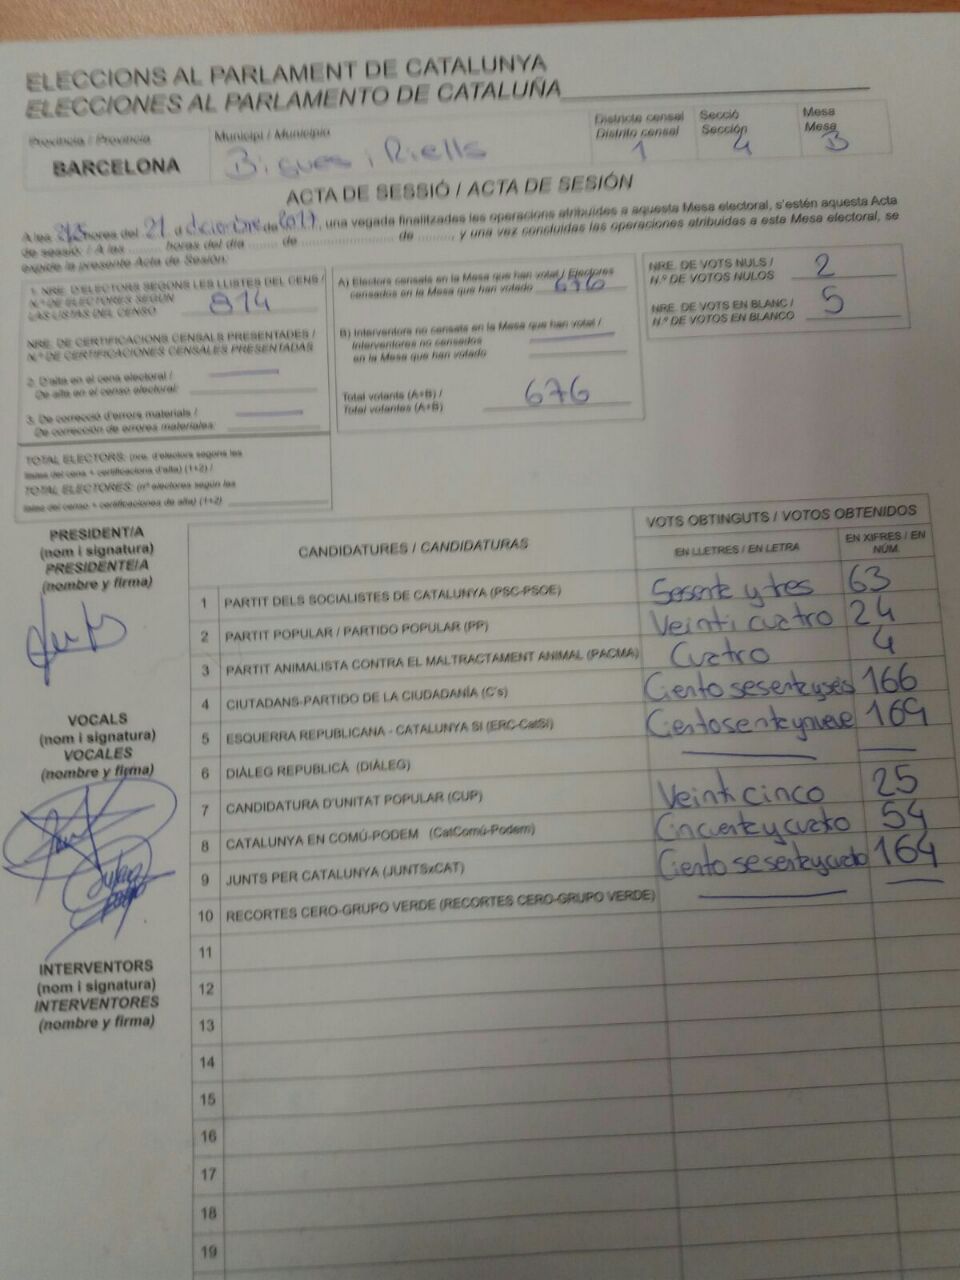 ELECCIONS AL PARLAMENT DE CATALUNYA
ELECCIONES AL PARLAMENTO DE CATALUÑA
Provincia / Provincia
BARCELONA
Municipi / Municipio
Bigues i Riells
Districte censal
Distrito censal
1
Secció
Sección
4
Mesa
Mesa
B
ACTA DE SESSIÓ / ACTA DE SESIÓN
A les hores del 21 d diciembre de 2017, una vegada finalitzades les operacions atribuïdes a aquesta Mesa electoral, s'estén aquesta Acta
de sessió. / A las ........ horas del día ....... de ........................ de ........, y una vez concluidas las operaciones atribuidas a esta Mesa electoral, se
expide la presente Acta de Sesión:
1. NRE. D'ELECTORS SEGONS LES LLISTES DEL CENS /
N.º DE ELECTORES SEGÚN
LAS LISTAS DEL CENSO
814
NRE. DE CERTIFICACIONS CENSALS PRESENTADES /
N.º DE CERTIFICACIONES CENSALES PRESENTADAS
2. D'alta en el cens electoral /
De alta en el censo electoral:
3. De correcció d'errors materials /
De corrección de errores materiales:
TOTAL ELECTORS: (nre. d'electors segons les
llistes del cens + certificacions d'alta) (1+2) /
TOTAL ELECTORES: (nº electores según las
listas del censo + certificaciones de alta) (1+2)
A) Electors censats en la Mesa que han votat / Electores
censados en la Mesa que han votado 676
B) Interventors no censats en la Mesa que han votat /
Interventores no censados
en la Mesa que han votado
Total votants (A+B) /
Total votantes (A+B)
676
NRE. DE VOTS NULS /
N.º DE VOTOS NULOS
2
NRE. DE VOTS EN BLANC /
N.º DE VOTOS EN BLANCO
5
PRESIDENT/A
(nom i signatura)
PRESIDENTE/A
(nombre y firma)
VOCALS
(nom i signatura)
VOCALES
(nombre y firma)
INTERVENTORS
(nom i signatura)
INTERVENTORES
(nombre y firma)
CANDIDATURES / CANDIDATURAS
VOTS OBTINGUTS / VOTOS OBTENIDOS
EN LLETRES / EN LETRA
EN XIFRES / EN
NÚM.
1 PARTIT DELS SOCIALISTES DE CATALUNYA (PSC-PSOE) Sesenta y tres 63
2 PARTIT POPULAR / PARTIDO POPULAR (PP) Veinti cuatro 24
3 PARTIT ANIMALISTA CONTRA EL MALTRACTAMENT ANIMAL (PACMA) Cuatro 4
4 CIUTADANS-PARTIDO DE LA CIUDADANÍA (C's) Ciento sesenta y seis 166
5 ESQUERRA REPUBLICANA - CATALUNYA SÍ (ERC-CatSÍ) Ciento senta y nueve 169
6 DIÀLEG REPUBLICÀ (DIÀLEG)
7 CANDIDATURA D'UNITAT POPULAR (CUP) Veinti cinco 25
8 CATALUNYA EN COMÚ-PODEM (CatComú-Podem) Cincuenta y cuatro 54
9 JUNTS PER CATALUNYA (JUNTSxCAT) Ciento sesenta y cuatro 164
10 RECORTES CERO-GRUPO VERDE (RECORTES CERO-GRUPO VERDE)
11
12
13
14
15
16
17
18
19